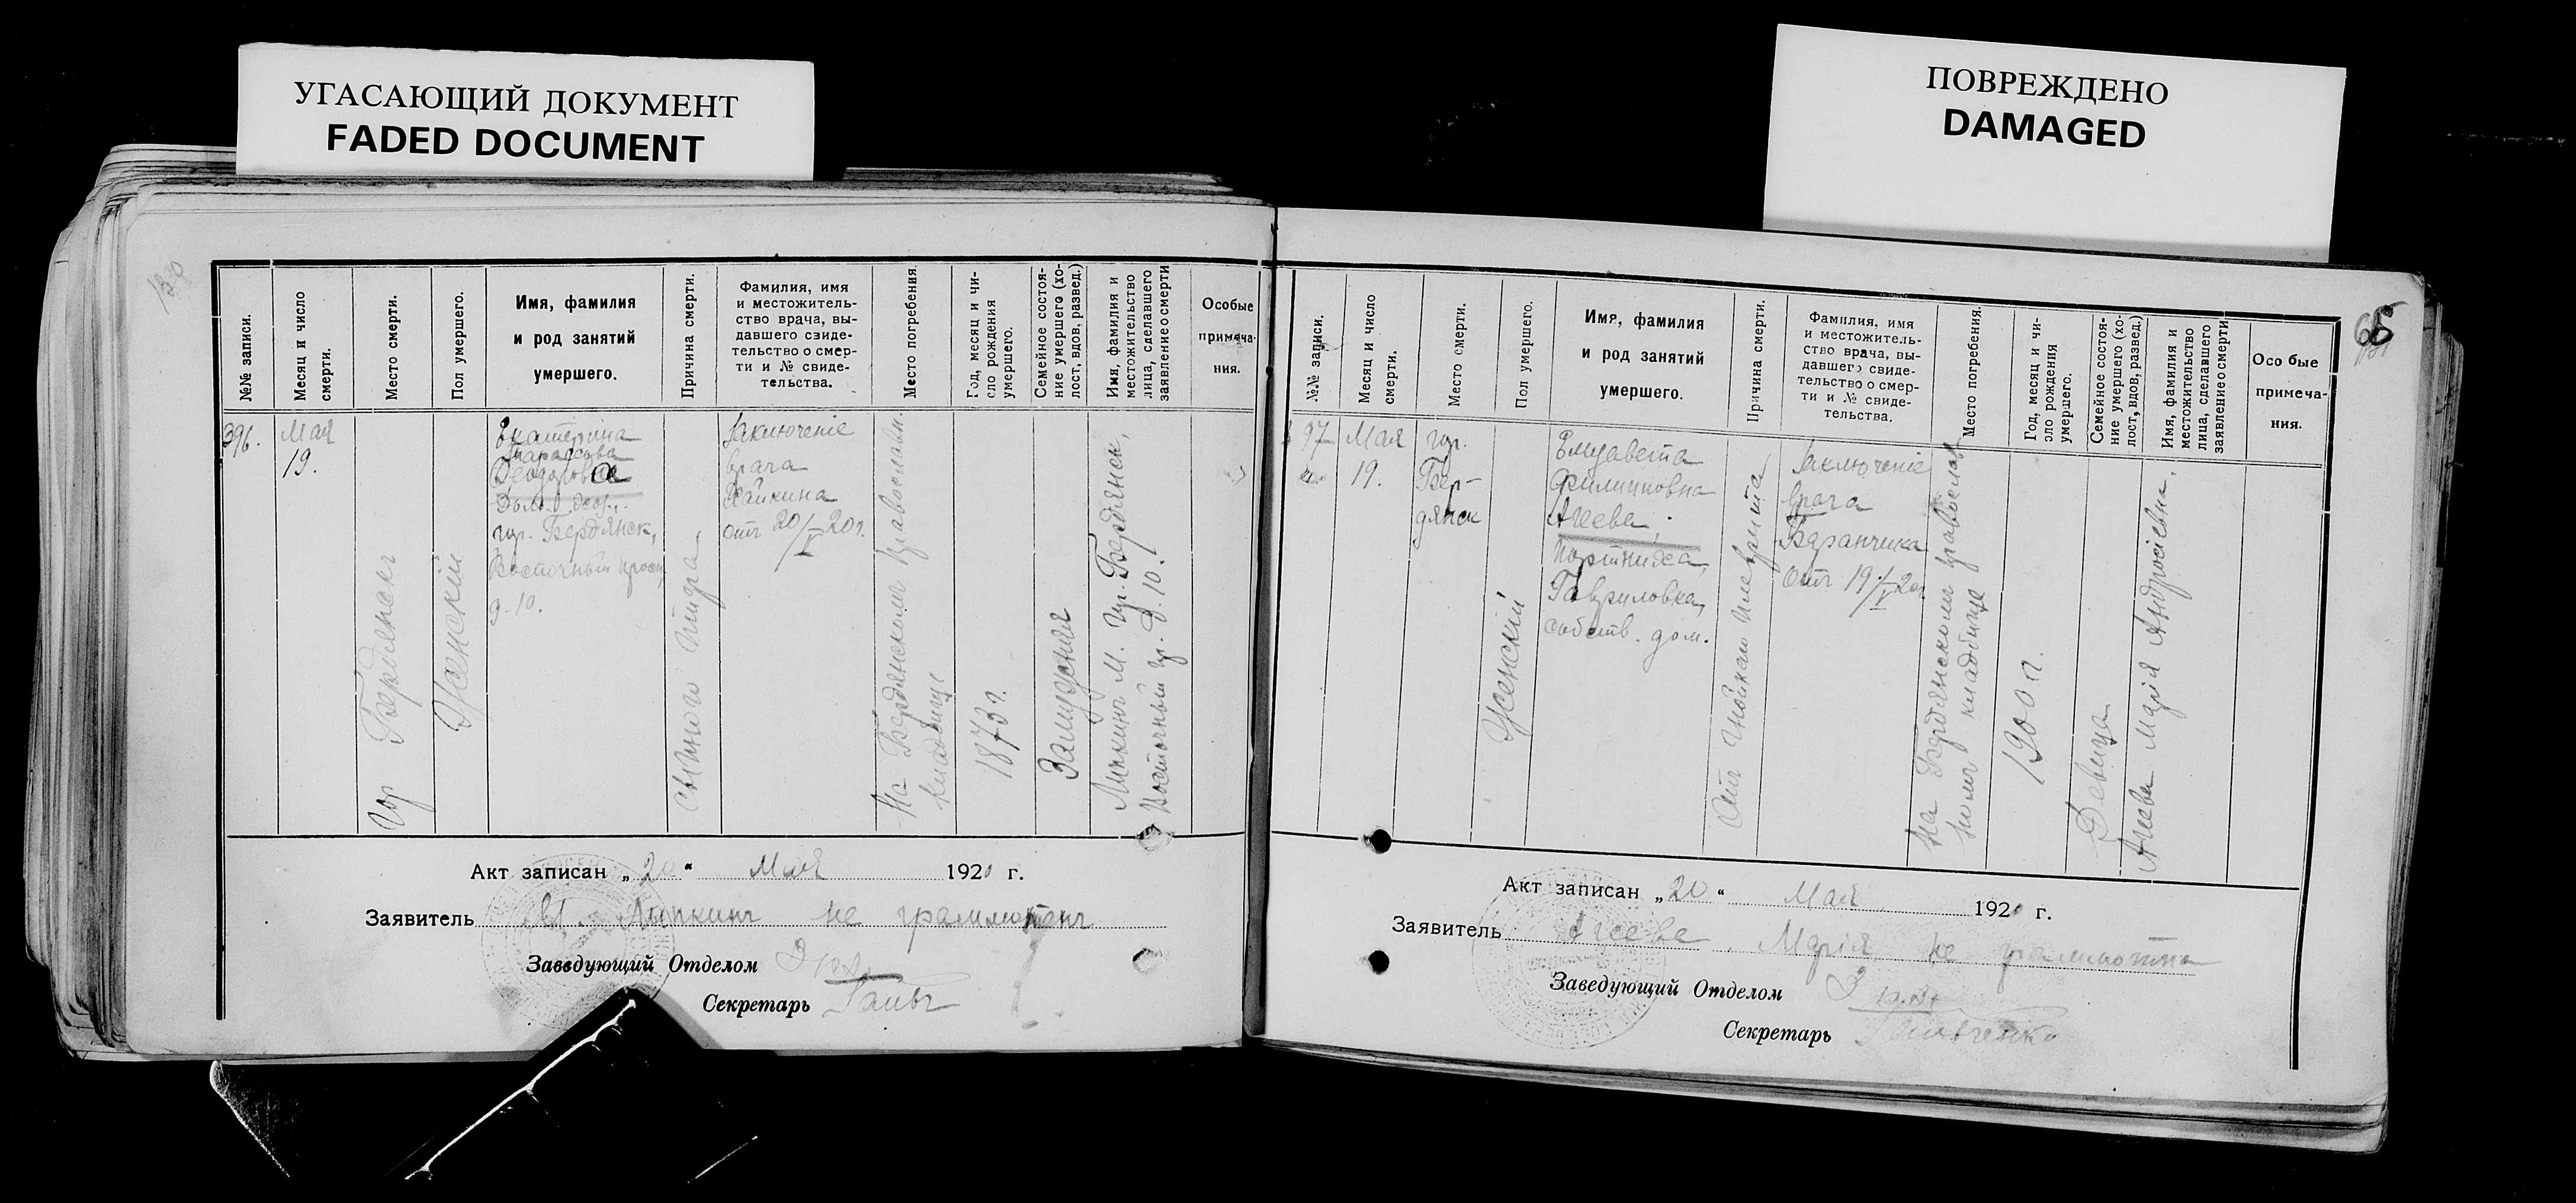 УГАСАЮЩИЙ ДОКУМЕНТ
FADED DOCUMENT
ПОВРЕЖДЕНО
DAMAGED
№№ записи.
Месяц и число
смерти.
Место смерти.
Пол умершего.
Имя, фамилия
и род занятий
умершего.
Причина смерти.
Фамилия, имя
и местожитель-
ство врача, вы-
давшего свиде-
тельство о смер-
ти и № свиде-
тельства.
Место погребения.
Год, месяц и чи-
сло рождения
умершего.
Семейное состоя-
ние умершего (хо-
лост, вдов, развед.)
Имя, фамилия и
местожительство
лица, сделавшего
заявление о смерти
Особые
примеча-
ния.
396.
Мая
19.
Гор Бердянскъ
Женский
Екатерина
Тарасова
Феодоровна
гор. Бердянск,
Восточный просп,
д. 10.
сыпного тифа.
Заключение
врача
Хайкина
отъ 20/V 20г.
На Бердянскомъ Православн.
кладбище
1873г.
Замужняя
Липкинъ М. Гор. Бердянск,
Восточный пр. д. 10.
Акт записан „20“ Мая 1920 г.
Заявитель М. Липкинъ не грамотенъ
Заведующий Отделом
Секретарь
65
№№ записи.
Месяц и число
смерти.
Место смерти.
Пол умершего.
Имя, фамилия
и род занятий
умершего.
Причина смерти.
Фамилия, имя
и местожитель-
ство врача, вы-
давшего свиде-
тельство о смер-
ти и № свиде-
тельства.
Место погребения.
Год, месяц и чи-
сло рождения
умершего.
Семейное состоя-
ние умершего (хо-
лост, вдов, развед.)
Имя, фамилия и
местожительство
лица, сделавшего
заявление о смерти
Особые
примеча-
ния.
397
Мая
19.
гор.
Бер-
дянск
Женский
Елизавета
Филипповна
Агеева.
Портниха,
Гавриловка,
собств. дом.
Отъ гнойнаго плеврита
Заключение
врача
Баранчика
отъ 19/V 20г
На Бердянскомъ православ
номъ кладбище
1900 г.
Девица
Агеева Мария Андреевна.
Акт записан „20“ Мая 1920 г.
Заявитель Агеева Мария не грамотна
Заведующий Отделом
Секретарь